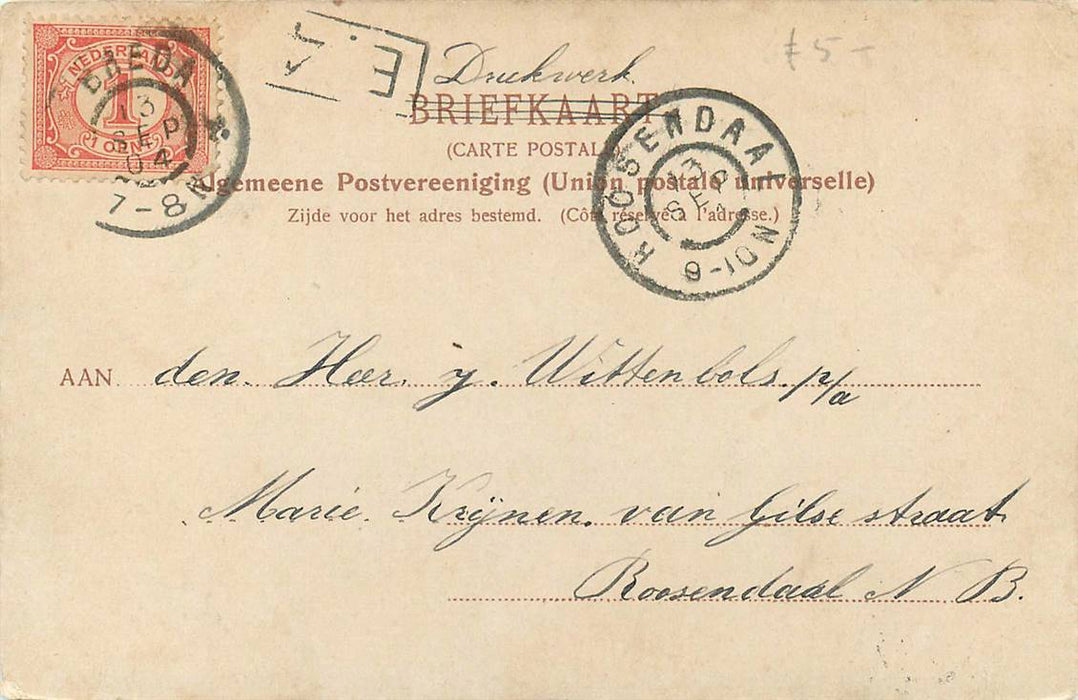 NEDERLAND
1
1 CENT
BREDA
3
SEP
04
7-8N
E.
£5-
Drukwerk.
BRIEFKAART
(CARTE POSTALE)
Algemeene Postvereeniging (Union postale universelle)
Zijde voor het adres bestemd. (Côté réservé à l'adresse.)
ROOSENDAAL
13
SEP
4
9-10N
AAN den Heer. y. Wittenbols. p/a
Marie Krijnen. van Gilse straat
Roosendaal N B.